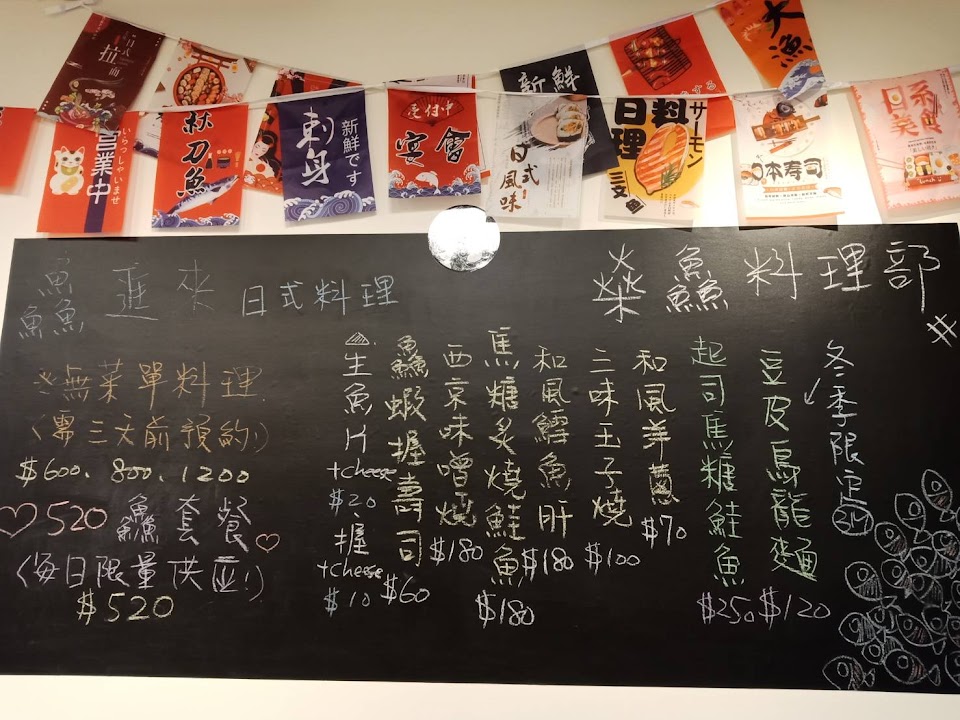 日式
拉面
新鮮
大漁
営業中
いらっしゃいませ
秋刀魚
刺身
新鮮です
受付中
宴會
日式
風味
日料理
サーモン
三文魚
日本寿司
日系
美食
鱻進來 日式料理
燊鱻料理部
※無菜單料理
(需三天前預約!)
$600、800、1200
♡520 鱻套餐♡
(每日限量供應!)
$520
🍙生魚片+cheese $20、握+cheese $10
鱻蝦握壽司 $60
西京味噌燒 $180
焦糖炙燒鮭魚 $180
和風鱈魚肝 $180
三味玉子燒 $100
和風洋蔥 $70
起司焦糖鮭魚 $250
豆皮烏龍麵 $120
冬季限定